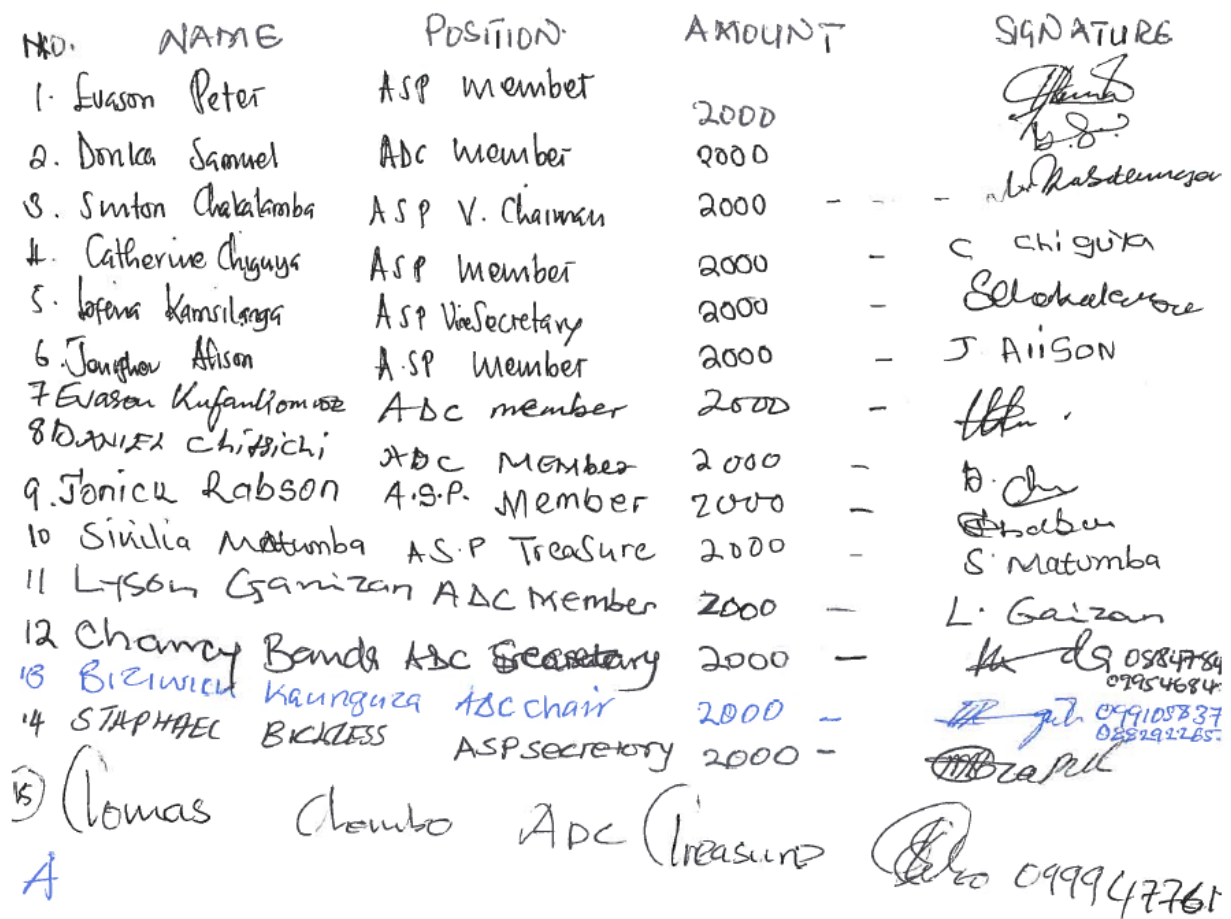 NO. NAME POSITION AMOUNT SIGNATURE
1. Evason Peter ASP member 2000
2. Donlca Samuel ADC member 2000
3. Sinton Chakalamba ASP V. Chairman 2000 - - -
4. Catherine Chiguya ASP member 2000 - C chiguya
5. Kamsilanga ASP Vice Secretary 2000 -
6. Alison A.SP member 2000 - J AliSON
7 Evason ADC member 2000 -
8 DANIEL ADC MEMber 2000 - D.
9. Jonicu Rabson A.S.P. Member 2000 -
10 Sivilia Matumba AS.P TreaSure 2000 - S. Matumba
11 LySon Ganizan ADC Member 2000 - L. Gaizan
12 Chancy Banda ADC Secretary 2000 - 0584784 09954684
13 Kaunguza ADC chair 2000 - 099105837
14 STAPHAEL BICKLESS ASP secretory 2000 -
15 Tomas Chembo ADC Treasure 099947761
A